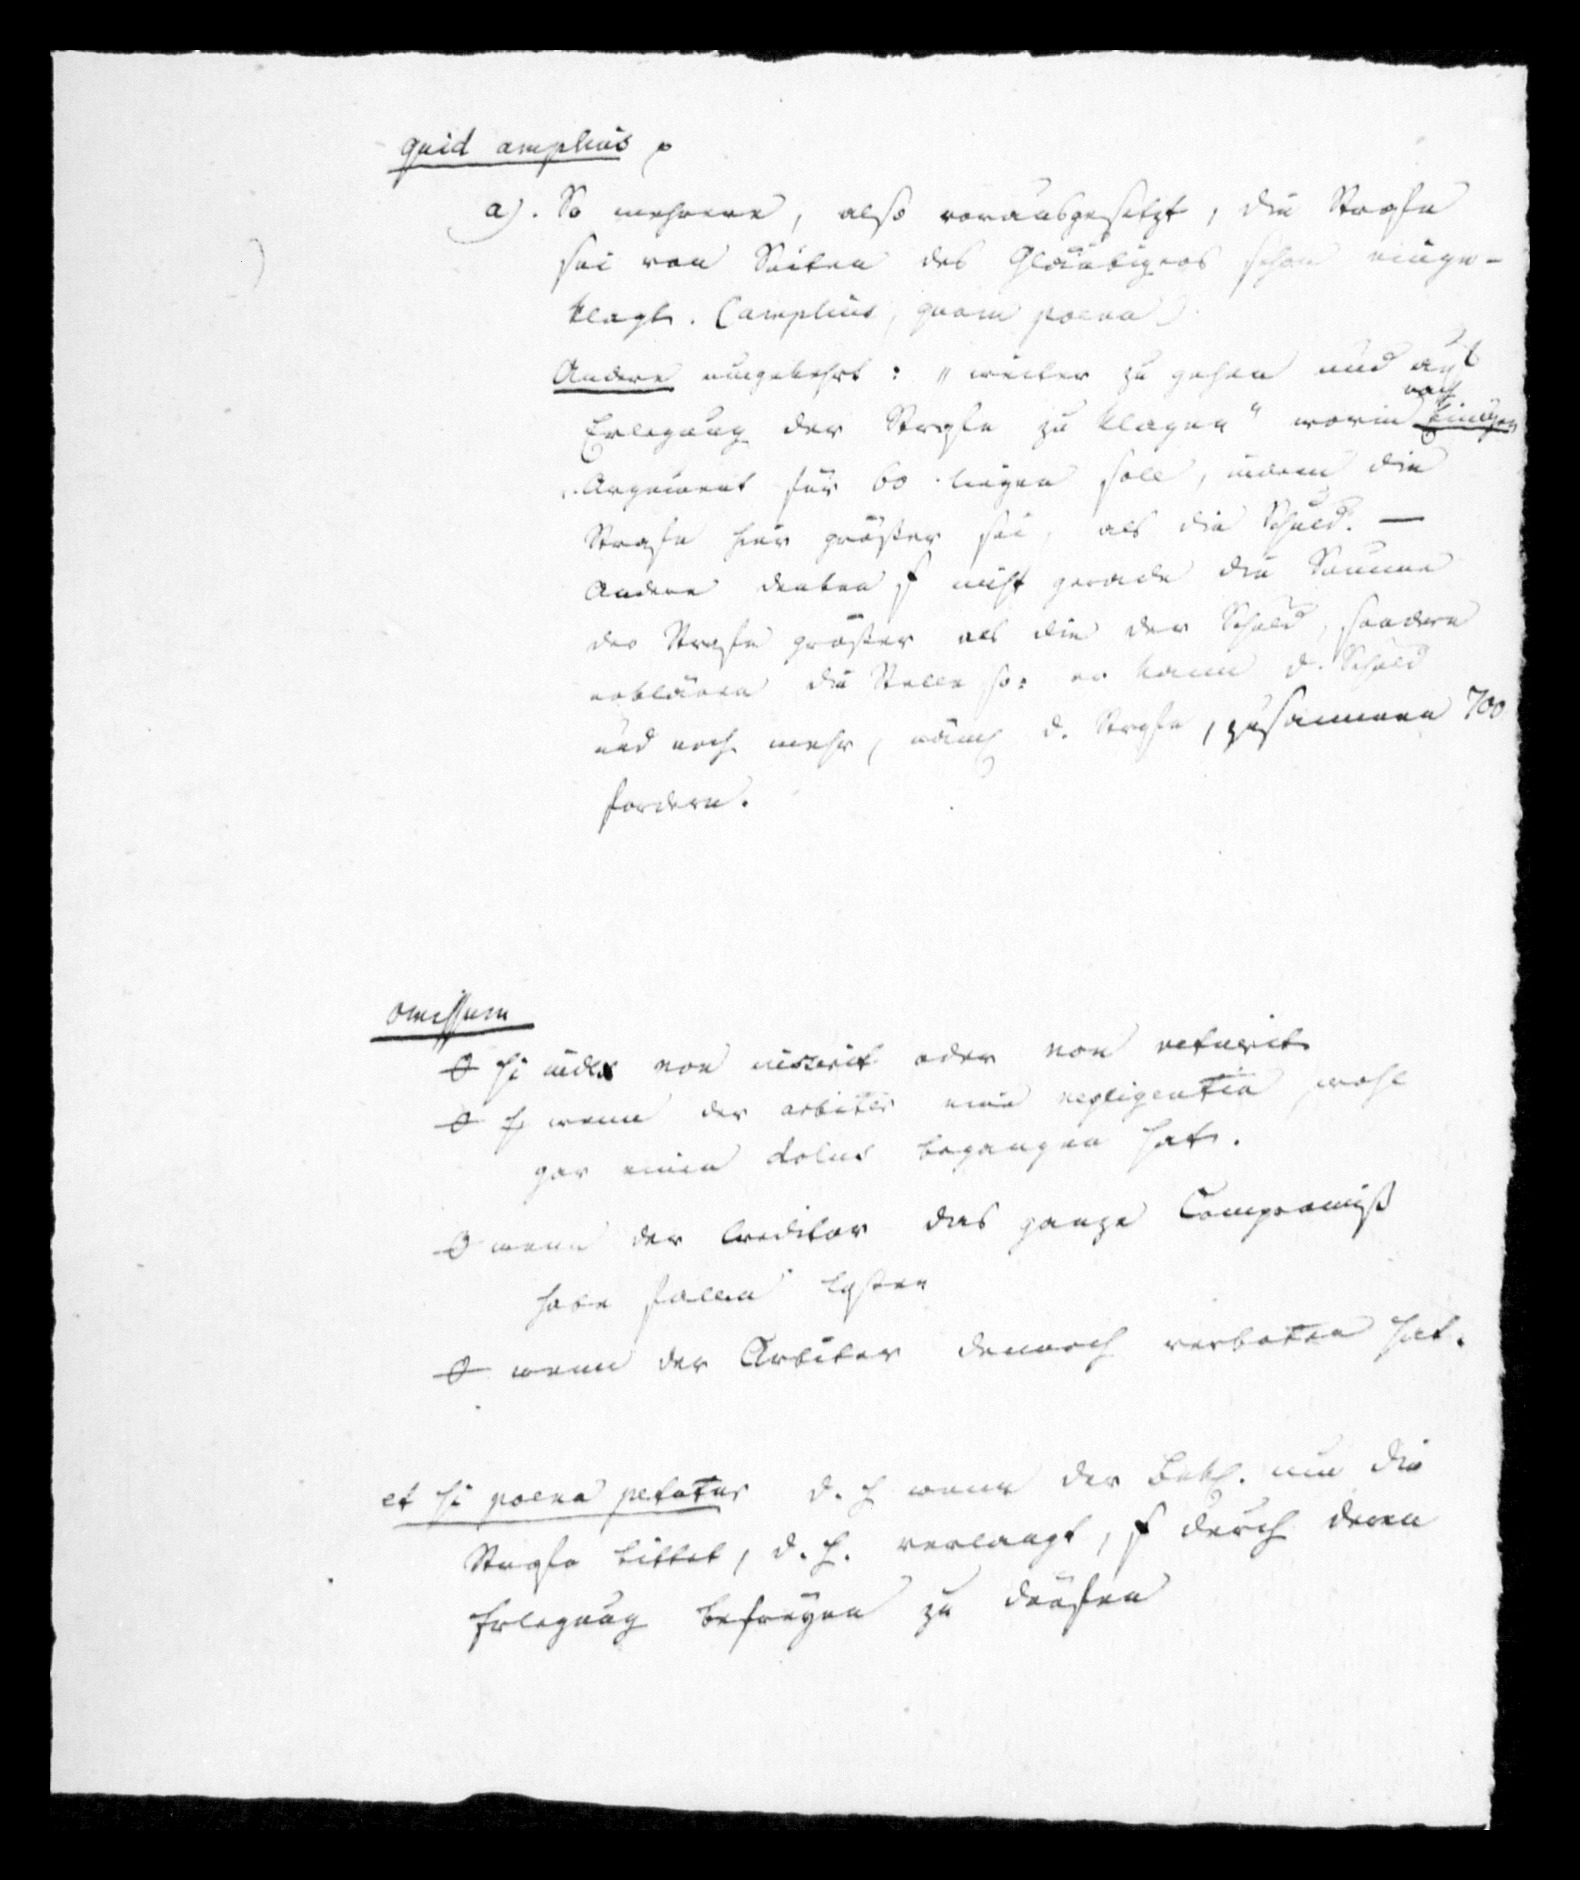 quid amplius
a). So mehrere, also vorausgesetzt, die Strafe
sei von Seiten des Gläubigers schon einge-
klagt. (amplius, quam poena)
Andere umgekehrt: „weiter zu gehen und auf
Erlegung der Strafe zu klagen" worin nach Einigen
Argument für 60 liegen soll, indem die
Strafe hier größer sei, als die Schuld. —
Andere denken nicht gerade die Summe
der Strafe größer als die der Schuld, sondern
erklären die Stelle so: er kann d. Schuld
und noch mehr, näml. d. Strafe, zusammen 700
fordern.
omissum
si iudex non iusserit oder non
wenn der arbiter eine negligentia, wohl
gar einen dolus begangen hat.
wenn der Creditor das ganze Compromiß
habe fallen laßen
wenn der Arbiter dennoch verboten hat.
et si poena petatur d. h. wenn der Bekl. um die
Strafe bittet, d. h. verlangt, durch deren
Erlegung befreyen zu dürfen